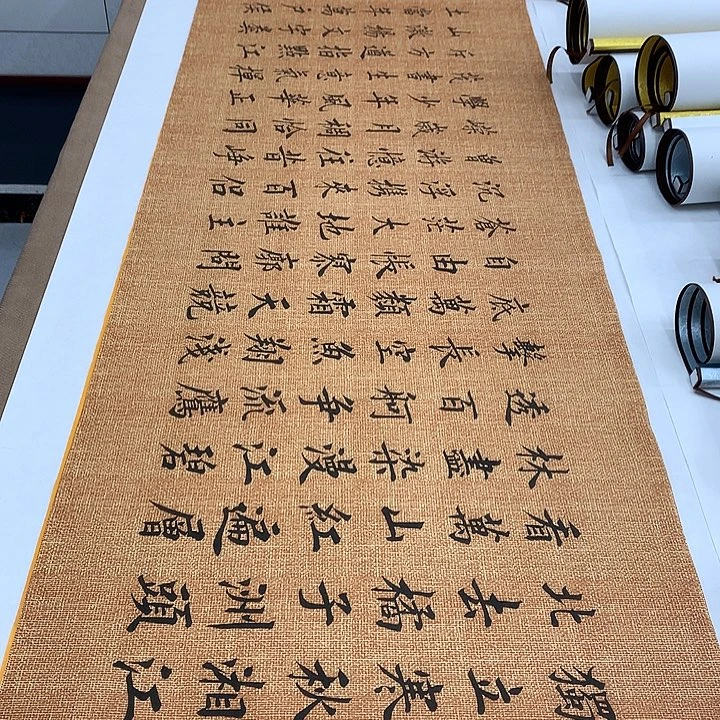 獨立寒秋湘江
北去橘子洲頭
看萬山紅遍層
林盡染漫江碧
透百舸爭流鷹
擊長空魚翔淺
底萬類霜天競
自由悵寥廓問
蒼茫大地誰主
沉浮攜來百侶
曾游憶往昔崢
嶸歲月稠恰同
學少年風華正
茂書生意氣揮
斥方遒指點江
山激揚文字糞
土當年萬戶侯